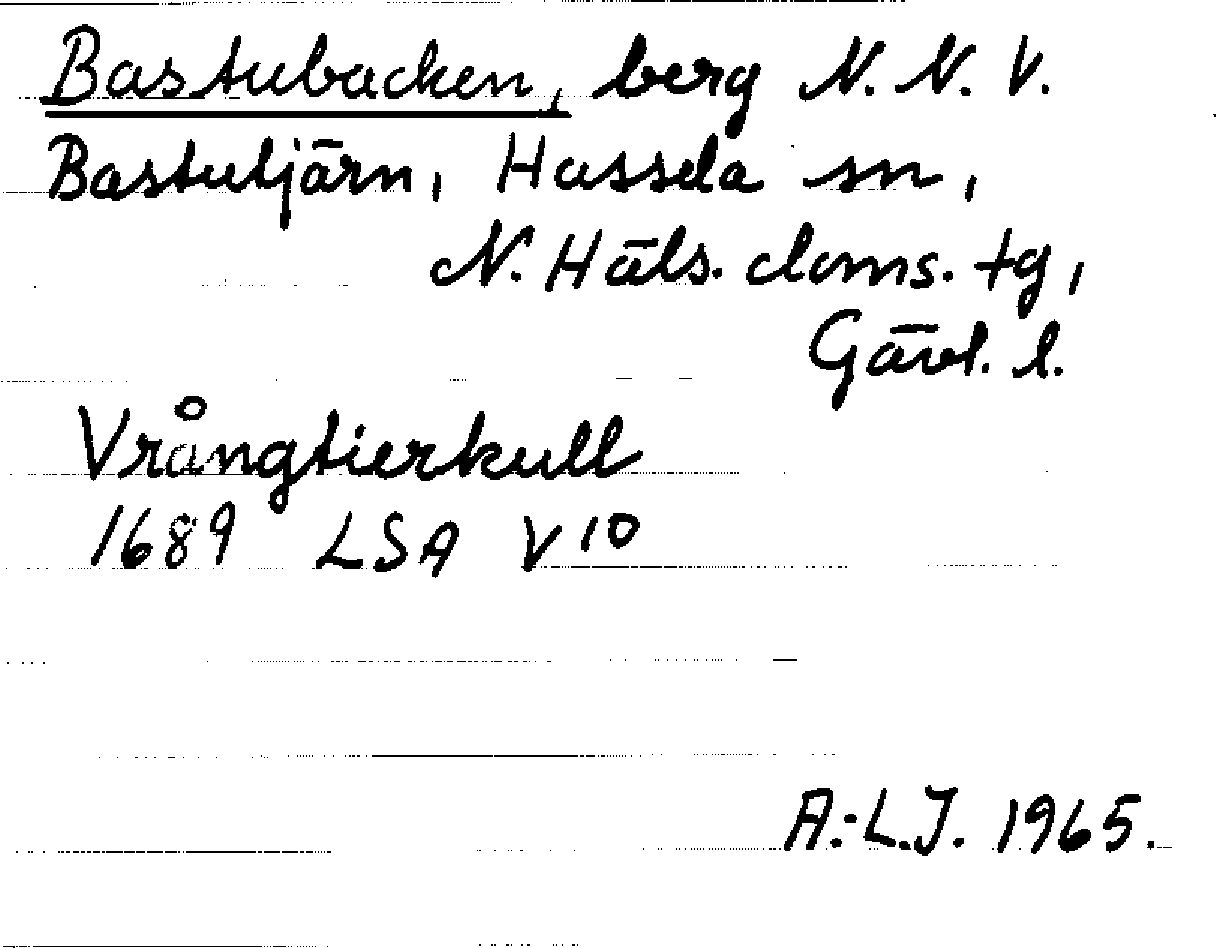 Bastubacken, berg N.N.V.
Bastutjärn, Hassela sn,
N. Häls. doms. tg,
Gävl. l.
Vrångtierkull
1689 LSA V 10
A.-L.J. 1965.